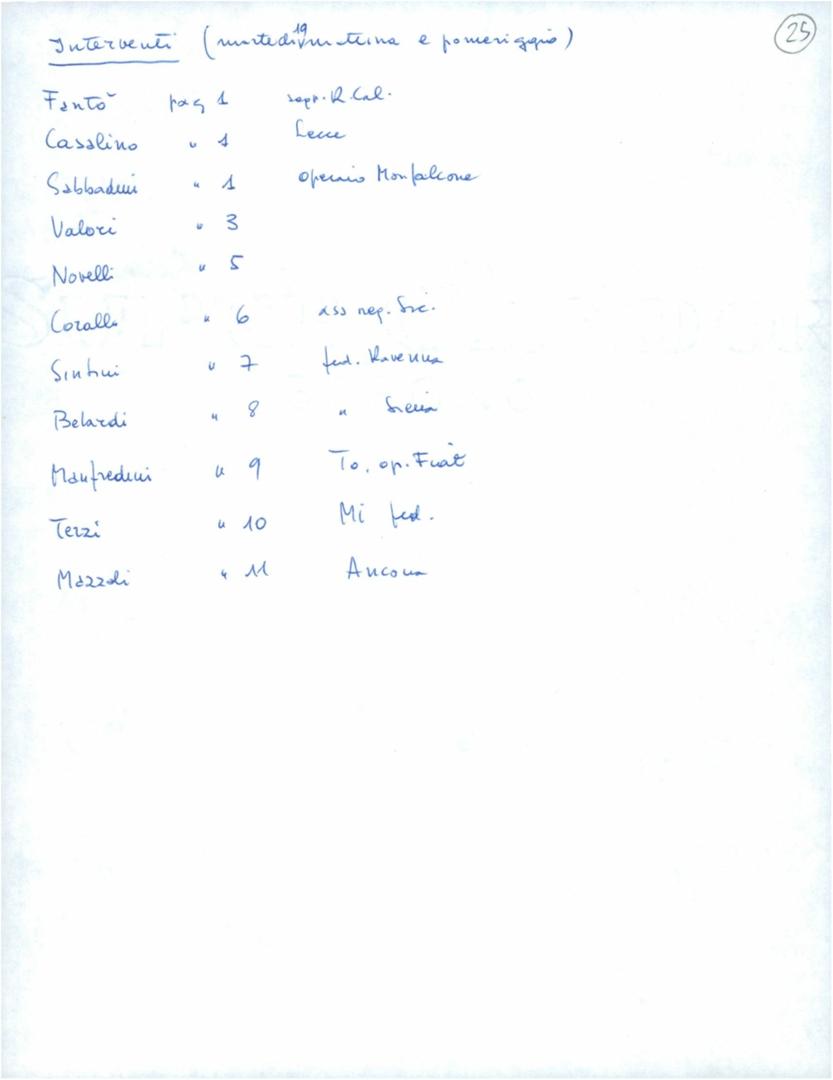 25
Interventi (martedì 19 mattina e pomeriggio)
Fantò pag 1 rapp. R. Cal.
Casalino " 1 Lecce
Sabbadini " 1 operaio Monfalcone
Valori " 3
Novelli " 5
Corallo " 6 ass reg. Sic.
Sintini " 7 fed. Ravenna
Belardi " 8 " Siena
Manfredini " 9 To, op. Fiat
Terzi " 10 Mi fed.
Mazzoli " 11 Ancona